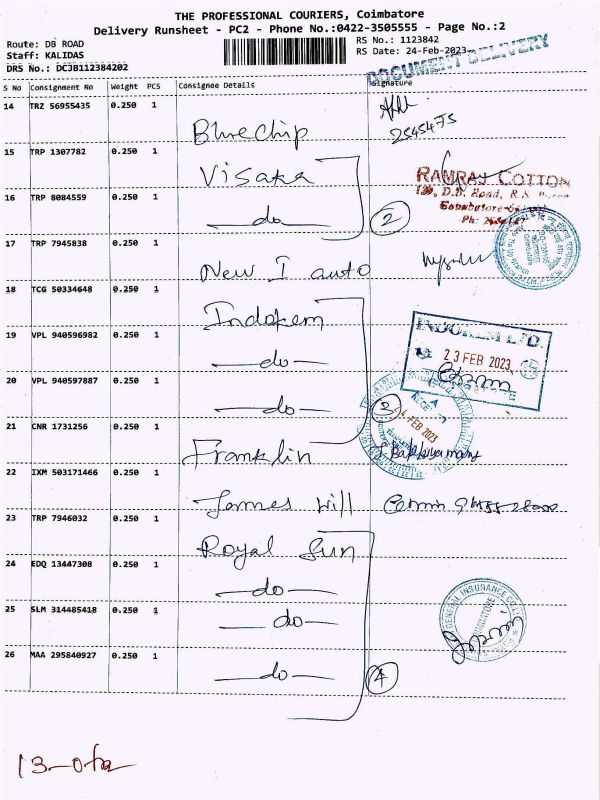 THE PROFESSIONAL COURIERS, Coimbatore
Delivery Runsheet - PC2 - Phone No.:0422-3505555 - Page No.:2
Route: DB ROAD
Staff: KALIDAS
DRS No.: DCJB112384202
RS No.: 1123842
RS Date: 24-Feb-2023
DOCUMENT DELIVERY
S No Consignment No Weight PCS Consignee Details Signature
14 TRZ 56955435 0.250 1
Blue chip
2545475
15 TRP 1307782 0.250 1
Visaka
RAMRAJ COTTON
D.B. Road, R.S.
Coimbatore
Ph:
16 TRP 8084559 0.250 1
—do— 2
17 TRP 7945838 0.250 1
New I auto
18 TCG 50334648 0.250 1
Indokem
INDOKEM LTD.
23 FEB 2023
19 VPL 940596982 0.250 1
—do—
20 VPL 940597887 0.250 1
—do— 3
FEB 2023
21 CNR 1731256 0.250 1
Franklin
22 IXM 503171466 0.250 1
James will
23 TRP 7946032 0.250 1
Royal Sun
24 EDQ 13447308 0.250 1
—do—
25 SLM 314485418 0.250 1
—do—
GENERAL INSURANCE CO.
26 MAA 295840927 0.250 1
—do— 4